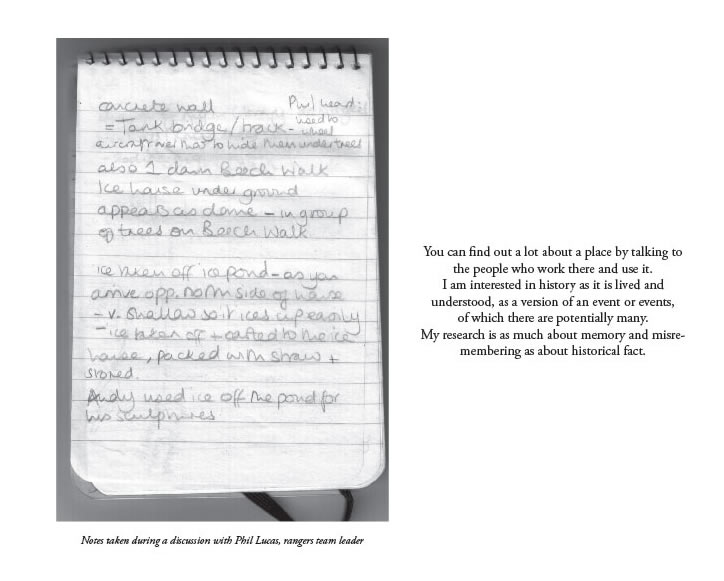 concrete wall
Phil heard:
used to
= Tank bridge/track - wheel
aircraft over has to hide them under trees
also 1 down Beech Walk
Ice house under ground
appears as dome - in group
of trees on Beech Walk
ice taken off ice pond - as you
arrive opp. north side of house
- v. shallow so it ices up easily
- ice taken off + carted to the ice
house, packed with straw +
stored.
Andy used ice off the pond for
his sculptures
Notes taken during a discussion with Phil Lucas, rangers team leader
You can find out a lot about a place by talking to
the people who work there and use it.
I am interested in history as it is lived and
understood, as a version of an event or events,
of which there are potentially many.
My research is as much about memory and misre-
membering as about historical fact.